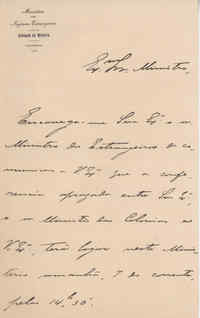 Ministério
dos
Negócios Estrangeiros
Gabinete do Ministro
Exmo Sr. Ministro,
Encarrega-me Sua Exª o
Ministro dos Estrangeiros de co-
municar a V. Exª que a confe-
rencia aprazada entre Sua Exª
e o Ministro das Colonias e
V. Exª, terá logar neste Minis-
terio amanhã, 7 do corrente,
pelas 14h 30'.